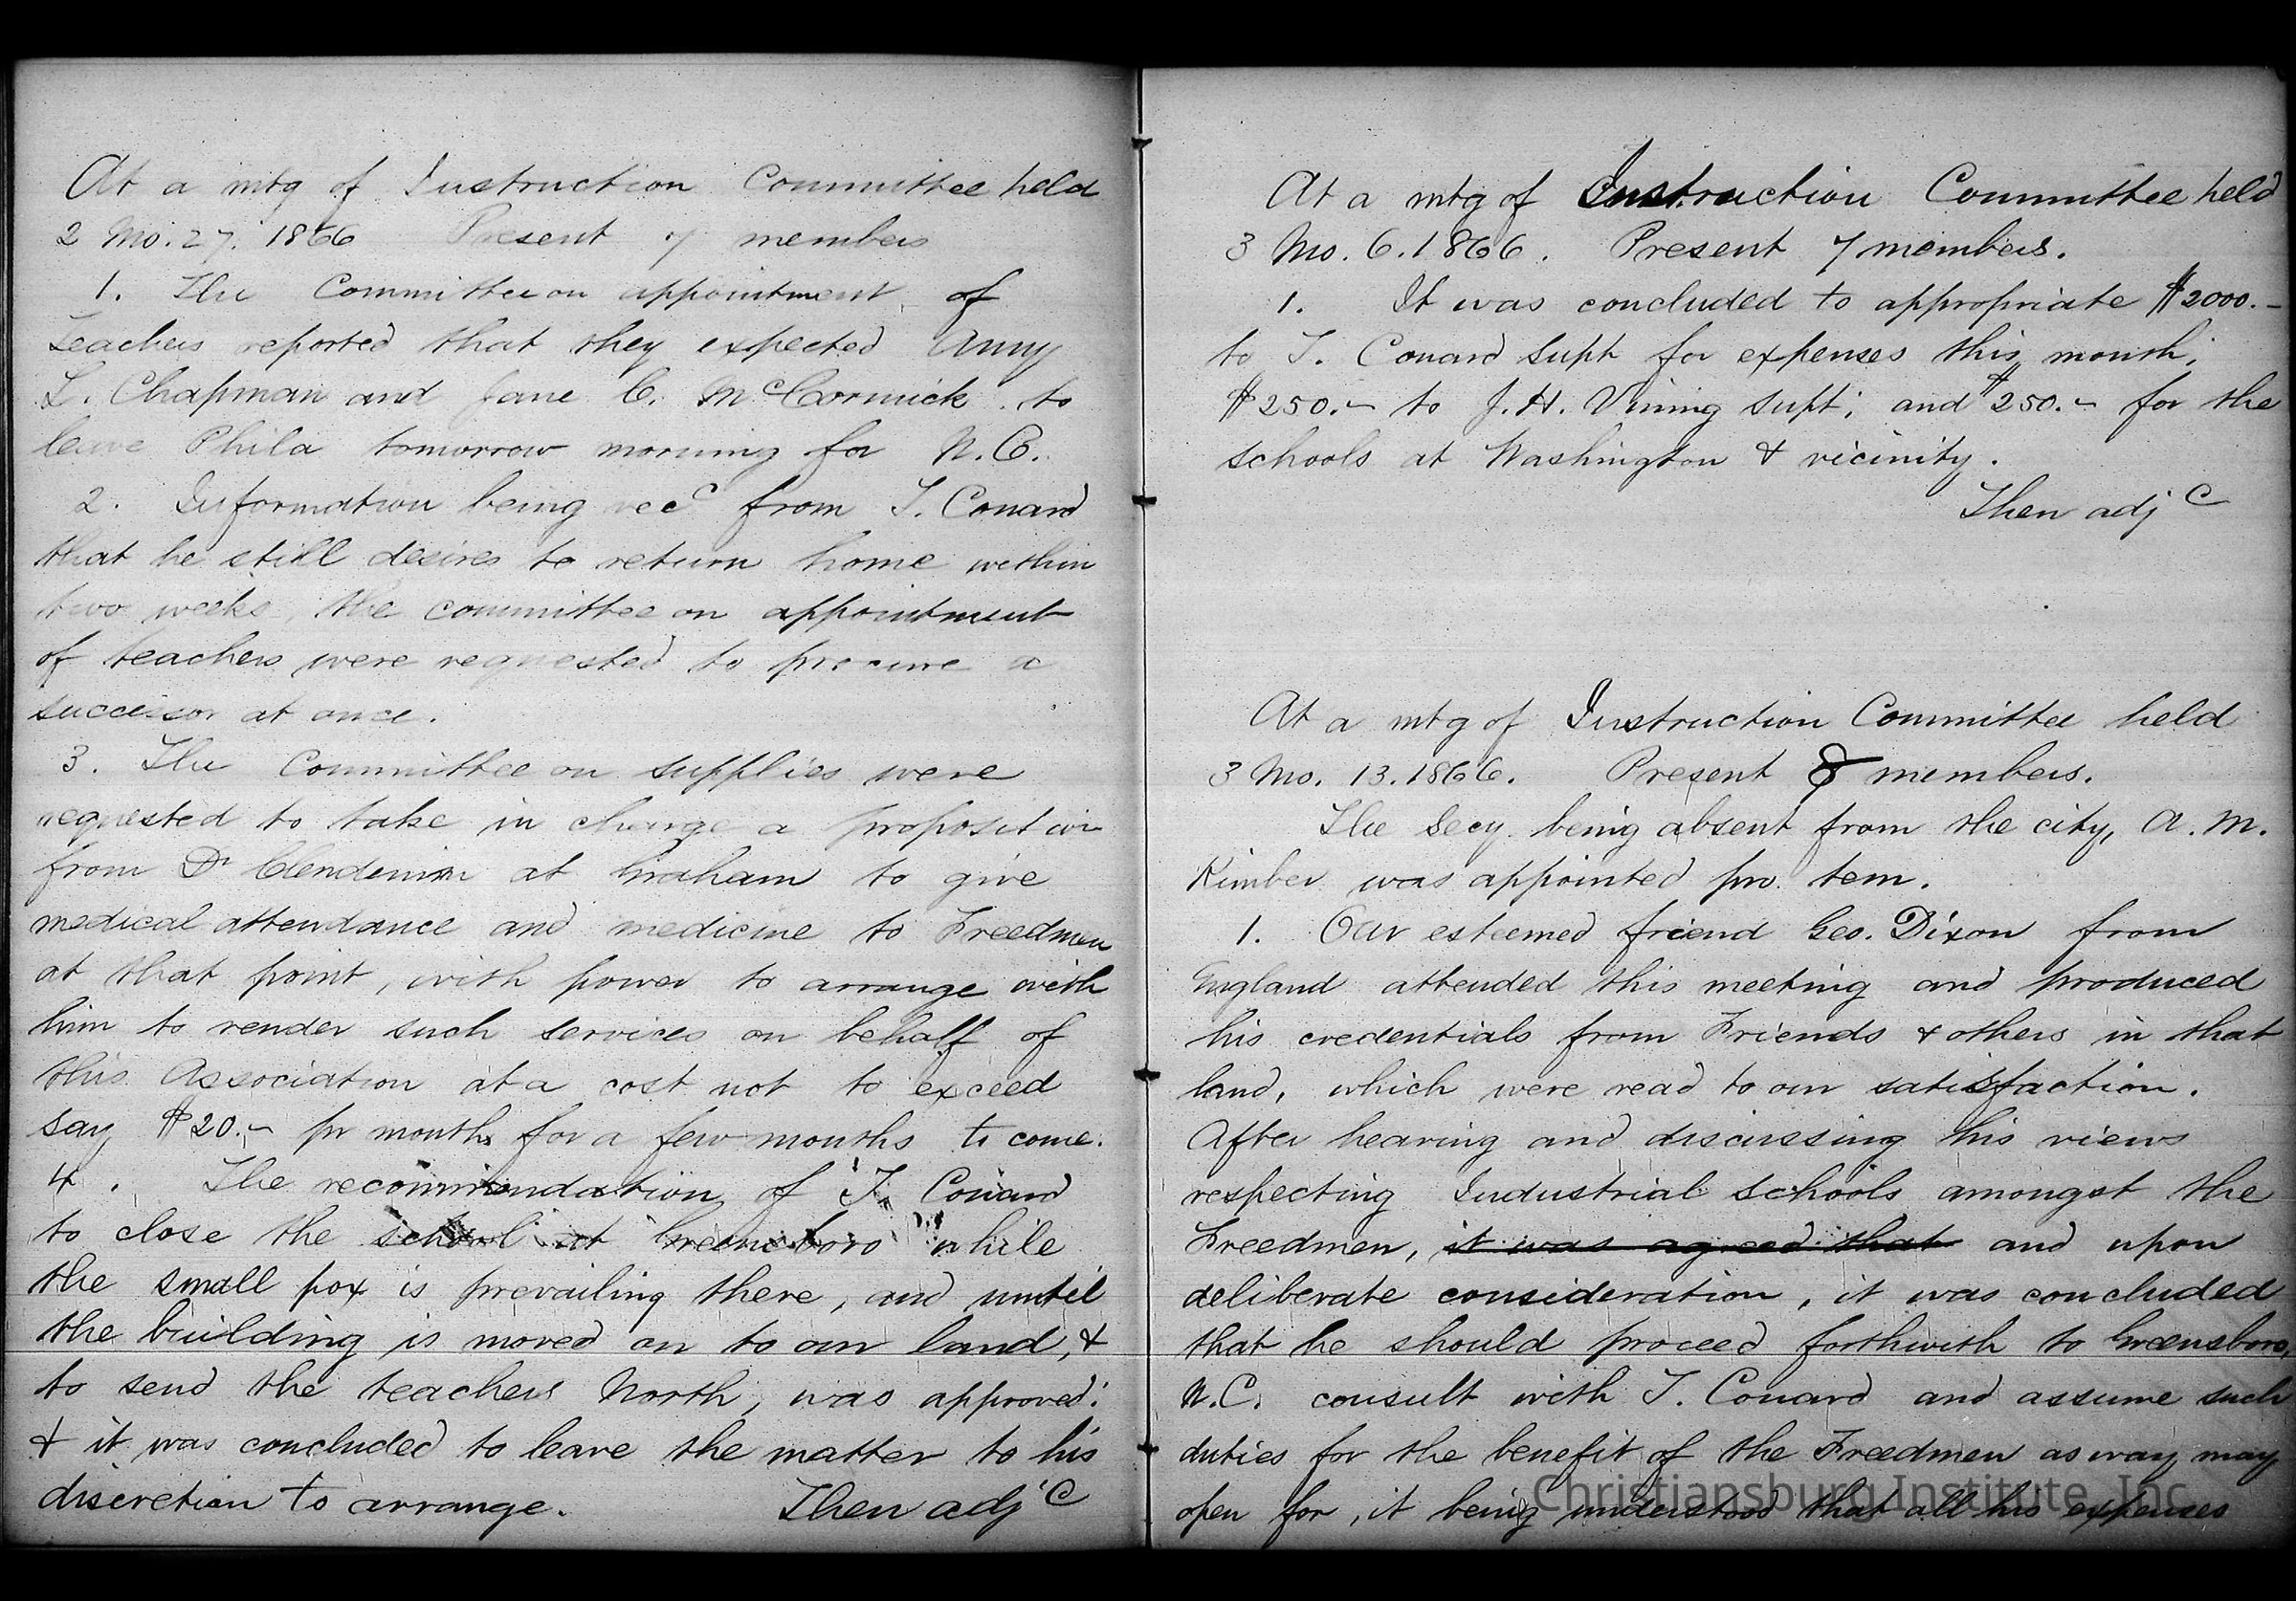 At a mtg of Instruction Committee held
2 Mo. 27. 1866 Present 7 members
1. The Committee on appointment of
Teachers reported that they expected Anny
L. Chapman and Jane C. McCormick to
leave Phila tomorrow morning for N.C.
2. Information being recd from T. Conard
that he still desires to return home within
two weeks, the committee on appointment
of teachers were requested to procure a
successor at once.
3. The Committee on supplies were
requested to take in charge a proposition
from Dr Clendenin at Graham to give
medical attendance and medicine to Freedmen
at that point, with power to arrange with
him to render such services on behalf of
this Association at a cost not to exceed
say $20.- pr month for a few months to come.
4. The recommendation of T. Conard
to close the school at Greensboro while
the small pox is prevailing there, and until
the building is moved on to our land, &
to send the teachers North, was approved:
& it was concluded to leave the matter to his
discretion to arrange. Then adjd
At a mtg of Instruction Committee held
3 Mo. 6. 1866. Present 7 members.
1. It was concluded to appropriate $2000.-
to T. Conard supt for expenses this month;
$250.- to J. H. Vining supt; and $250.- for the
schools at Washington & vicinity.
Then adjd
At a mtg of Instruction Committee held
3 Mo. 13. 1866. Present 8 members.
The Secy. being absent from the city, A. M.
Kimber was appointed pro. tem.
1. Our esteemed friend Geo. Dixon from
England attended this meeting and produced
his credentials from Friends & others in that
land, which were read to our satisfaction.
After hearing and discussing his views
respecting Industrial schools amongst the
Freedmen, it was agreed that and upon
deliberate consideration, it was concluded
that he should proceed forthwith to Greensboro,
N.C. consult with T. Conard and assume such
duties for the benefit of the Freedmen as way may
open for, it being understood that all his expenses
Christiansburg Institute, Inc.